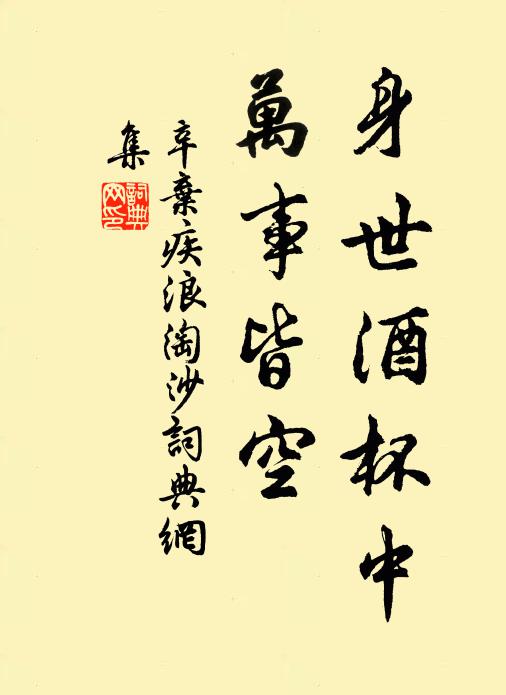 身世酒杯中
萬事皆空
辛棄疾浪淘沙詞典網
集
詞典
网印